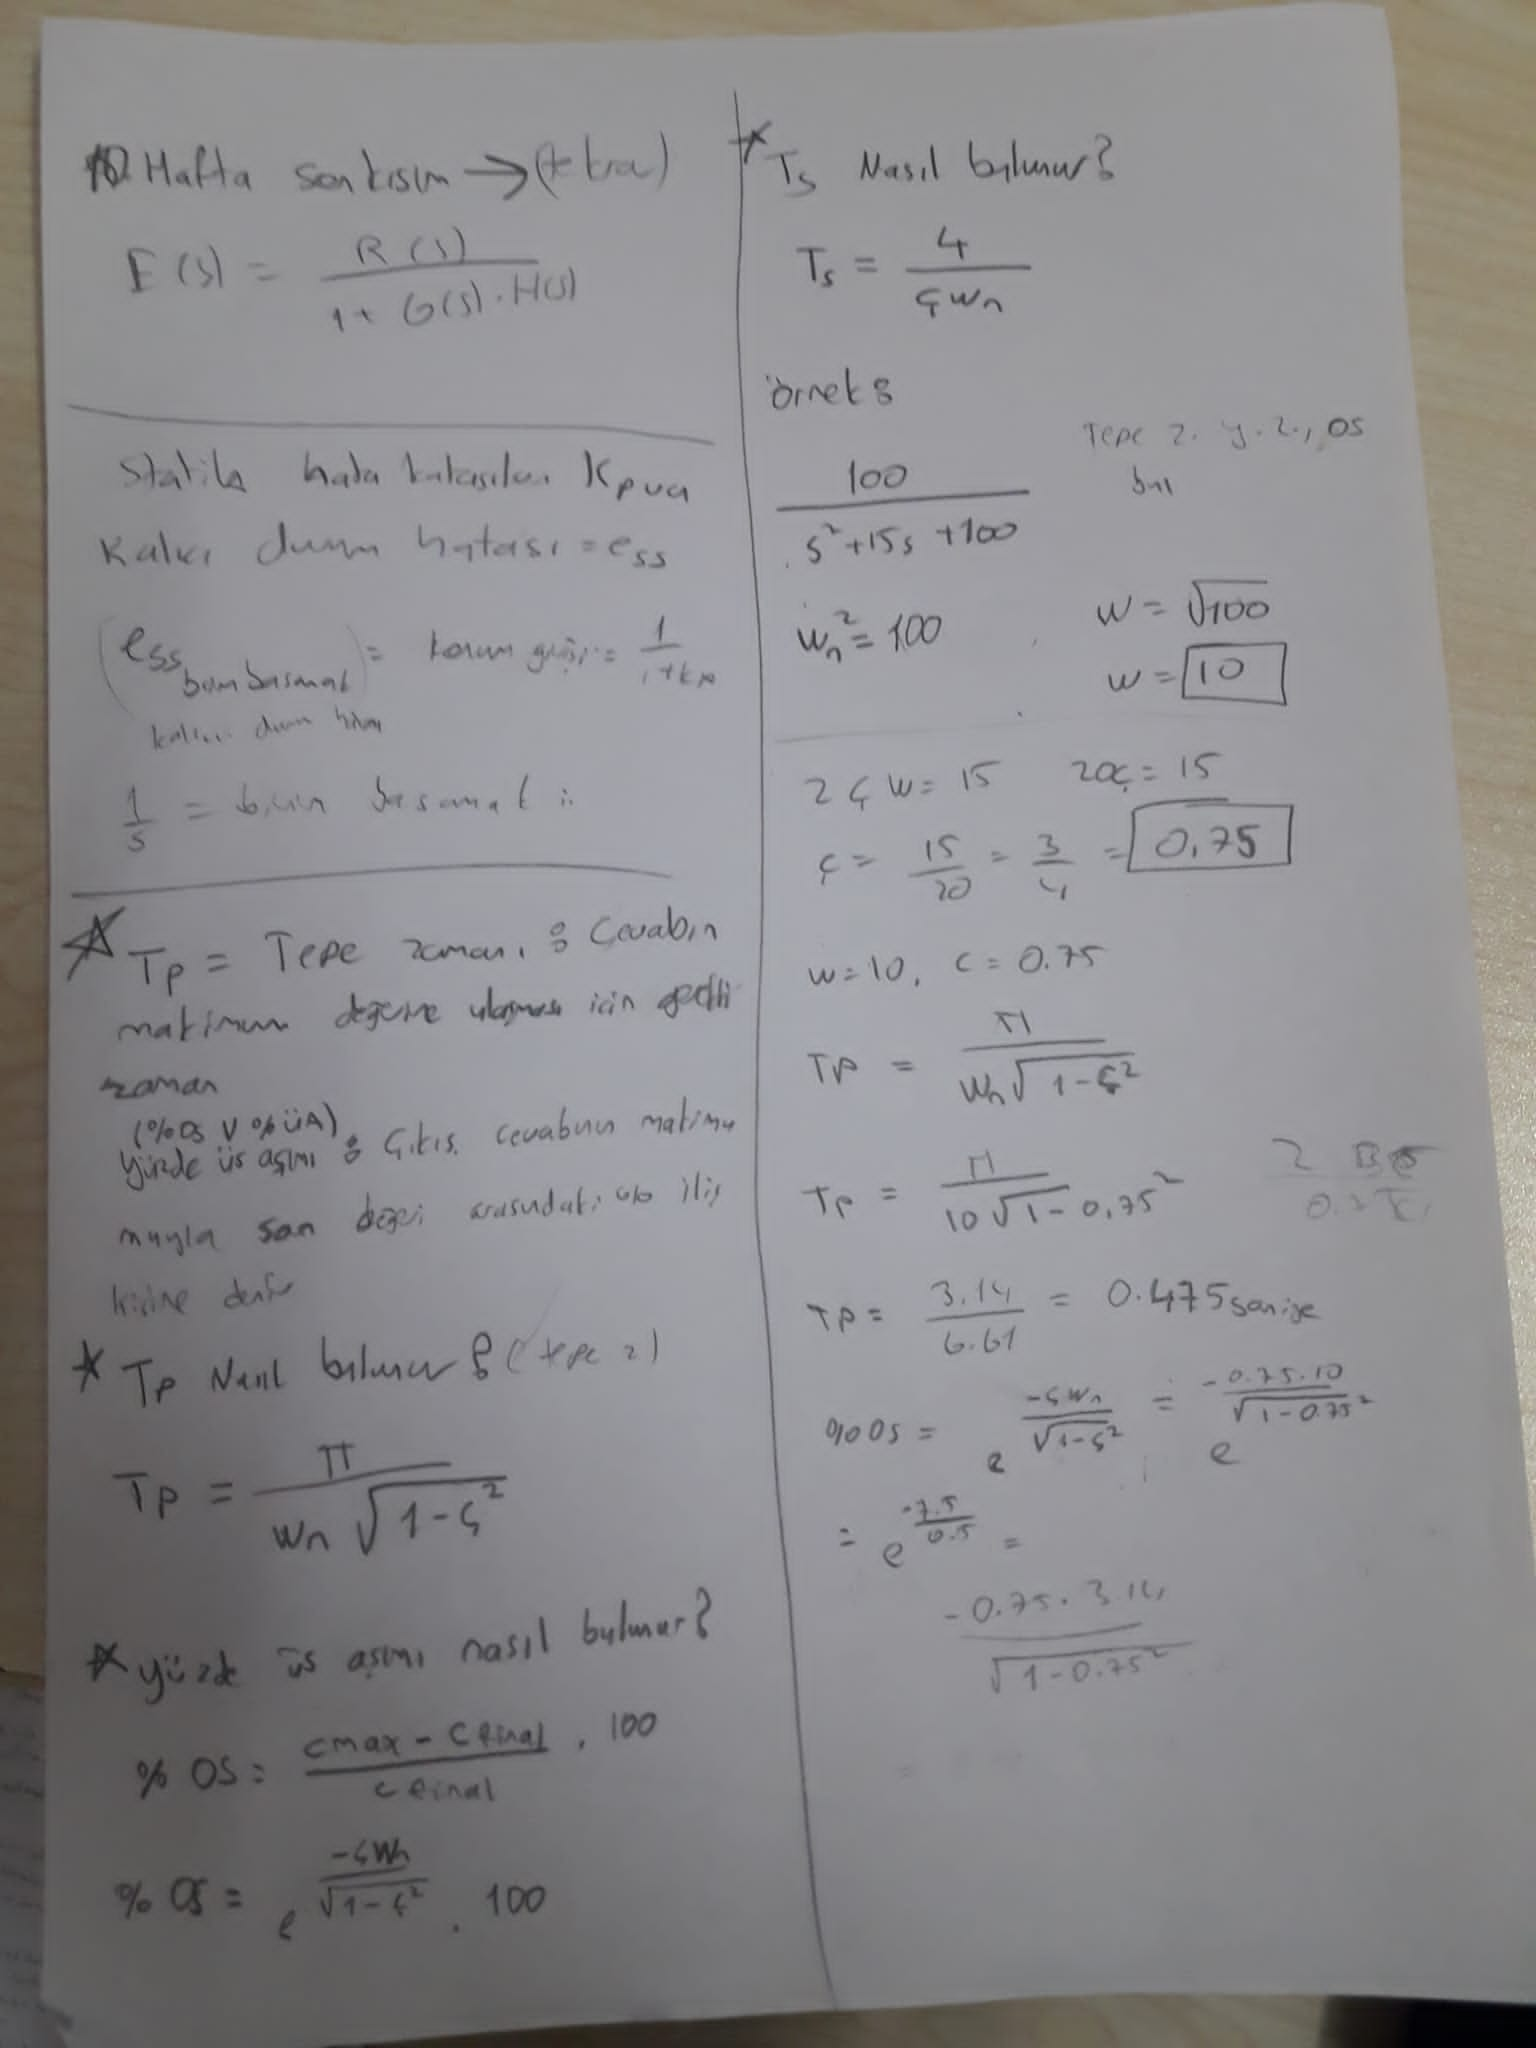 10. Hafta son kısım → (tekra)
E(s) = R(s) / 1 + G(s) . H(s)
Statik hata katsayıları Kpva
Kalıcı durum hatası = ess
(ess birim basamak) = konum girişi = 1 / 1+kp
kalıcı durum
1/s = birim basamak :
Tp = Tepe zamanı : Cevabın
maksimum değerine ulaşması için gerekli
zaman
(%OS V %ÜA)
Yüzde üs aşımı : Çıkış cevabının maksimu
muyla son değeri arasındaki %lo iliş
kisine denir
* Tp Nasıl bulunur? (tepe z)
Tp = π / wn √1-ς²
* yüzde üs aşımı nasıl bulunur?
% OS = cmax - cfinal / cfinal . 100
% OS = e^(-ςWn / √1-ς²) . 100
* Ts Nasıl bulunur?
Ts = 4 / ςwn
örnek :
Tepe z. y.z., OS
bul
100 / s²+15s+100
wn² = 100
w = √100
w = 10
2ςw = 15 20ς = 15
ς = 15/20 = 3/4 = 0,75
w = 10, ς = 0.75
Tp = π / wn√1-ς²
Tp = π / 10√1-0,75²
Tp = 3.14 / 6.61 = 0.475 saniye
%OS = e^(-ςwn / √1-ς²) = e^(-0.75.10 / √1-0.75²)
= e^(-7.5 / 0.5) =
-0.75. 3.14 / √1-0.75²